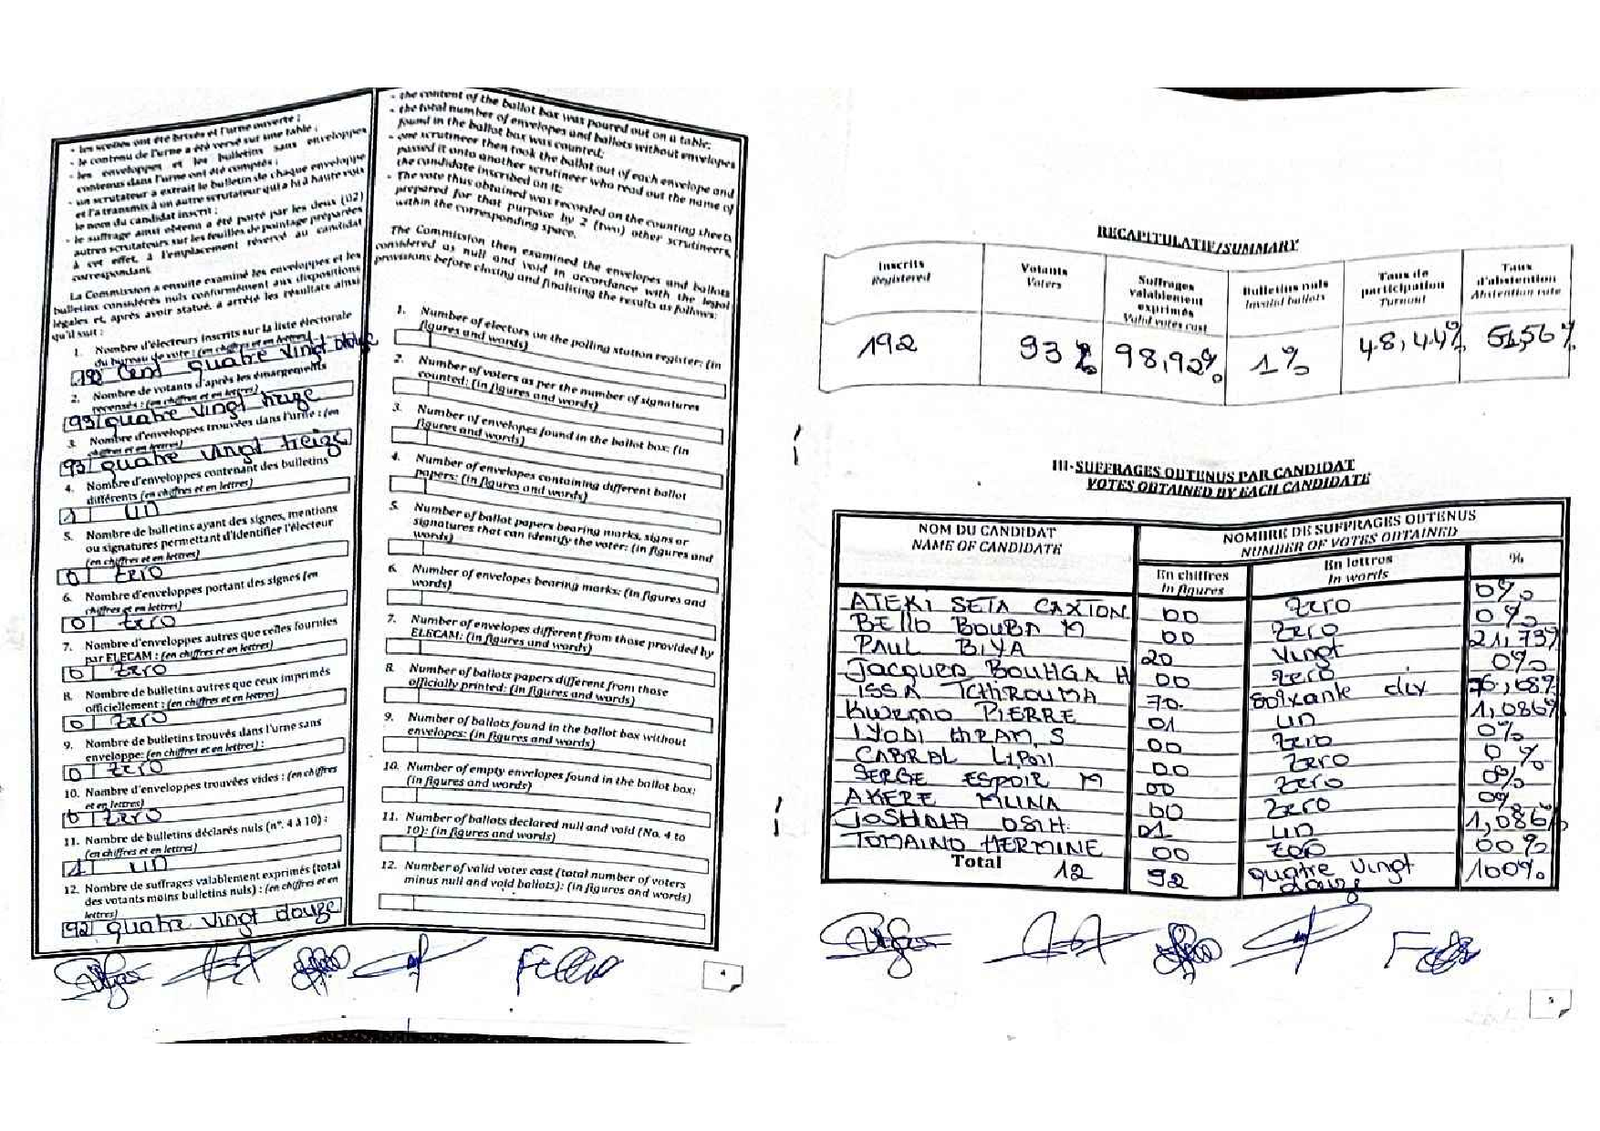 - les scellés ont été brisés et l'urne ouverte ;
- le contenu de l'urne a été versé sur une table ;
- les enveloppes et les bulletins sans enveloppes
contenus dans l'urne ont été comptés ;
- un scrutateur a extrait le bulletin de chaque enveloppe
et l'a transmis à un autre scrutateur qui a lu à haute voix
le nom du candidat inscrit ;
- le suffrage ainsi obtenu a été porté par les deux (02)
autres scrutateurs sur les feuilles de pointage préparées
à cet effet, à l'emplacement réservé au candidat
correspondant.
La Commission a ensuite examiné les enveloppes et les
bulletins considérés nuls conformément aux dispositions
légales et, après avoir statué, a arrêté les résultats ainsi
qu'il suit :
1. Nombre d'électeurs inscrits sur la liste électorale
du bureau de vote : (en chiffres et en lettres)
192 Cent quatre vingt douze
2. Nombre de votants d'après les émargements
recensés : (en chiffres et en lettres)
93 quatre vingt treize
3. Nombre d'enveloppes trouvées dans l'urne : (en
chiffres et en lettres)
93 quatre vingt treize
4. Nombre d'enveloppes contenant des bulletins
différents (en chiffres et en lettres)
1 un
5. Nombre de bulletins ayant des signes, mentions
ou signatures permettant d'identifier l'électeur
(en chiffres et en lettres)
0 zero
6. Nombre d'enveloppes portant des signes (en
chiffres et en lettres)
0 zero
7. Nombre d'enveloppes autres que celles fournies
par ELECAM : (en chiffres et en lettres)
0 zero
8. Nombre de bulletins autres que ceux imprimés
officiellement : (en chiffres et en lettres)
0 zero
9. Nombre de bulletins trouvés dans l'urne sans
enveloppe: (en chiffres et en lettres) :
0 zero
10. Nombre d'enveloppes trouvées vides : (en chiffres
et en lettres)
0 zero
11. Nombre de bulletins déclarés nuls (n°. 4 à 10) :
(en chiffres et en lettres)
1 un
12. Nombre de suffrages valablement exprimés (total
des votants moins bulletins nuls) : (en chiffres et en
lettres)
92 quatre vingt douze
- the content of the ballot box was poured out on a table;
- the total number of envelopes and ballots without envelopes
found in the ballot box was counted;
- one scrutineer then took the ballot out of each envelope and
passed it onto another scrutineer who read out the name of
the candidate inscribed on it;
- The vote thus obtained was recorded on the counting sheets
prepared for that purpose by 2 (two) other scrutineers,
within the corresponding space.
The Commission then examined the envelopes and ballots
considered as null and void in accordance with the legal
provisions before closing and finalising the results as follows:
1. Number of electors on the polling station register: (in
figures and words)
2. Number of voters as per the number of signatures
counted: (in figures and words)
3. Number of envelopes found in the ballot box: (in
figures and words)
4. Number of envelopes containing different ballot
papers: (in figures and words)
5. Number of ballot papers bearing marks, signs or
signatures that can identify the voter: (in figures and
words)
6. Number of envelopes bearing marks: (in figures and
words)
7. Number of envelopes different from those provided by
ELECAM: (in figures and words)
8. Number of ballots papers different from those
officially printed: (in figures and words)
9. Number of ballots found in the ballot box without
envelopes: (in figures and words)
10. Number of empty envelopes found in the ballot box:
(in figures and words)
11. Number of ballots declared null and void (No. 4 to
10): (in figures and words)
12. Number of valid votes cast (total number of voters
minus null and void ballots): (in figures and words)
4
RECAPITULATIF/SUMMARY
Inscrits
Registered
Votants
Voters
Suffrages
valablement
exprimés
Valid votes cast
Bulletins nuls
Invalid ballots
Taux de
participation
Turnout
Taux
d'abstention
Abstention rate
192 93 98,92% 1% 48,44% 51,56%
III-SUFFRAGES OBTENUS PAR CANDIDAT
VOTES OBTAINED BY EACH CANDIDATE
NOM DU CANDIDAT
NAME OF CANDIDATE
NOMBRE DE SUFFRAGES OBTENUS
NUMBER OF VOTES OBTAINED
En chiffres
In figures
En lettres
In words
%
ATEKI SETA CAXTON 00 Zero 0%
BELLO BOUBA M 00 Zero 0%
PAUL BIYA 20 Vingt 21,73%
Jacques BOUHGA H 00 Zero 0%
ISSA TCHIROUMA 70 Soixante dix 76,08%
KWEMO PIERRE 01 un 1,086%
IYODI HIRAM S 00 Zero 0%
CABRAL LIBOII 00 Zero 0%
SERGE ESPOIR M 00 Zero 0%
AKERE MUNA 00 Zero 0%
JOSHUA OSIH 01 un 1,086%
TOMAINO HERMINE 00 Zero 00%
Total 12 92 quatre vingt douze 100%
5